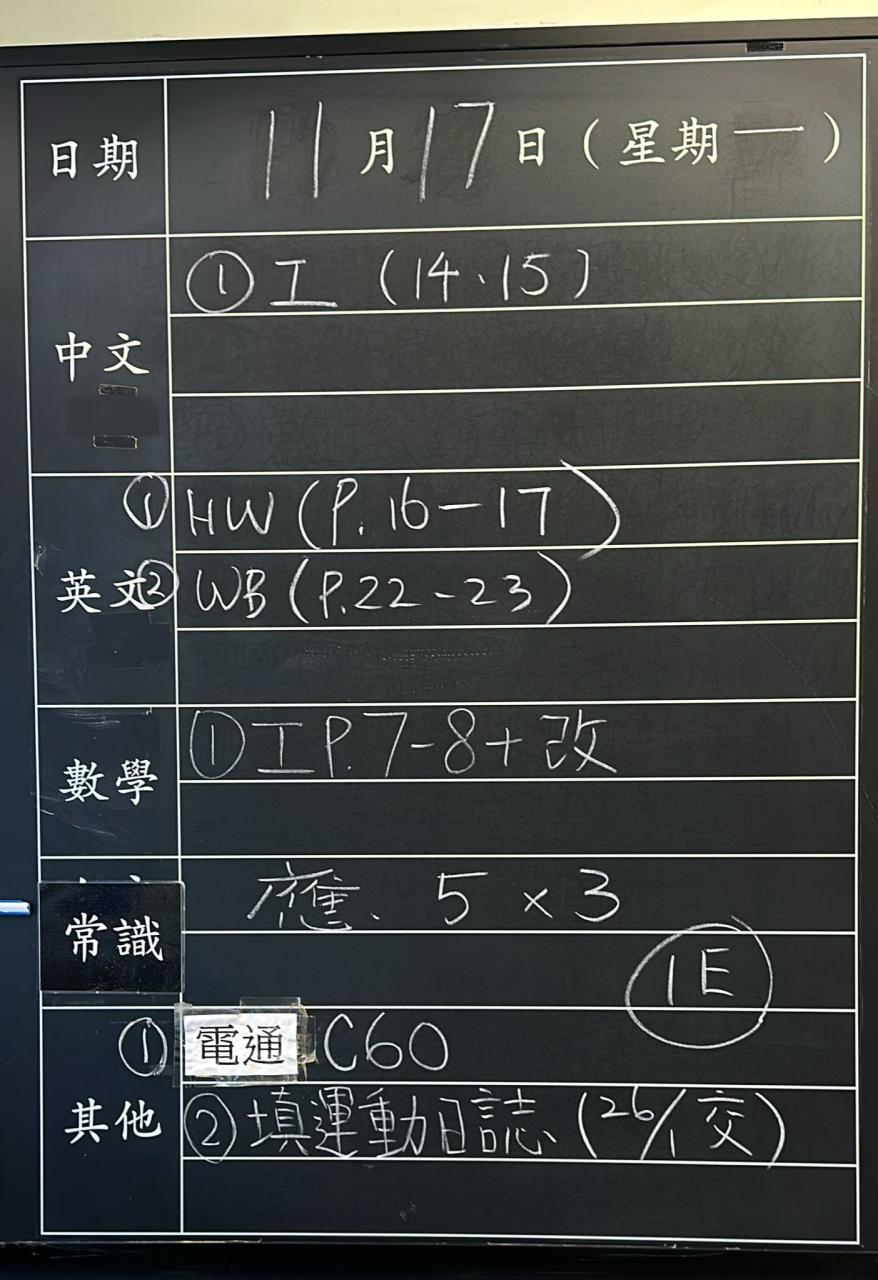 日期 11月17日（星期一）
中文 ①工 (14、15)
英文 ①HW (P.16-17)
②WB (P.22-23)
數學 ①工P.7-8+改
常識 應、5×3
1E
其他 ①電通 C60
②填運動日誌 (26/1交)